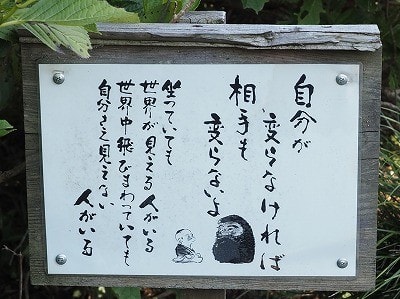 自分が
変らなければ
相手も
変らないよ
坐っていても
世界が見える人がいる
世界中飛びまわっていても
自分さえ見えない
人がいる